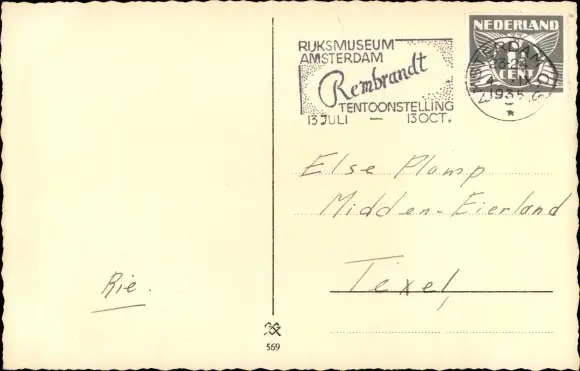 RIJKSMUSEUM
AMSTERDAM
Rembrandt
TENTOONSTELLING
13 JULI — 13 OCT.
NEDERLAND
1
CENT
AMSTERDAM
1935
Else Plomp
Midden-Eierland
Texel,
Rie.
569